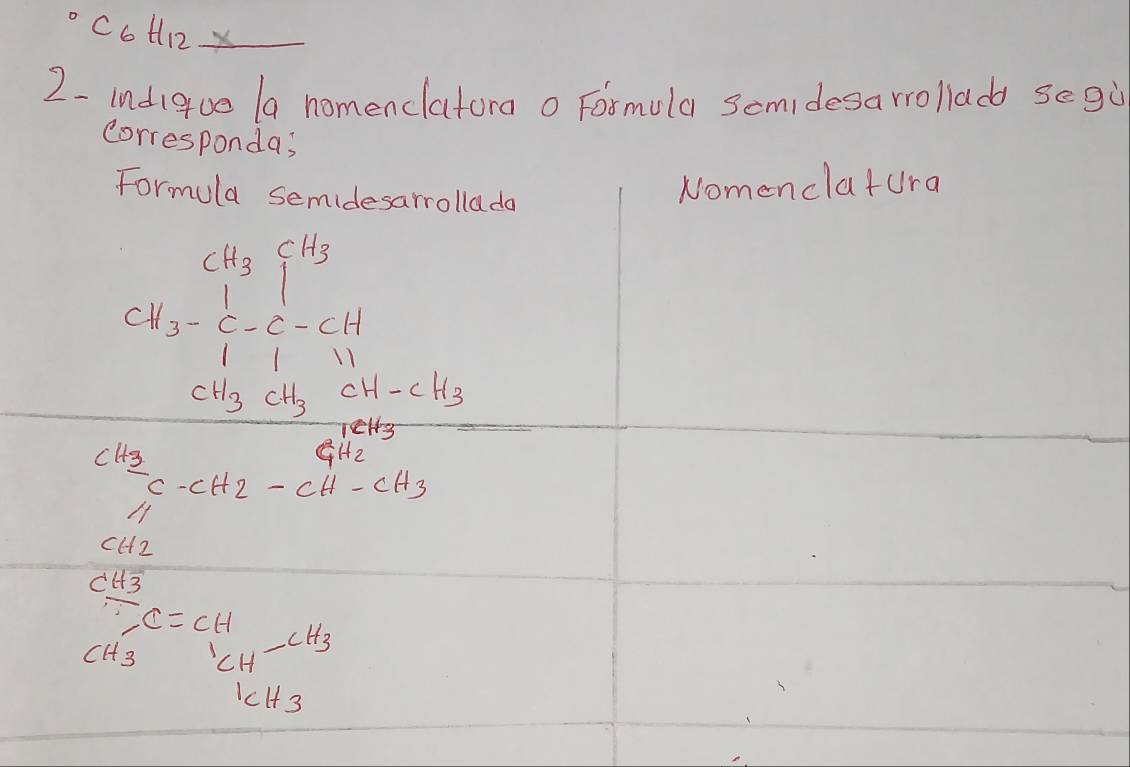 ° C6 H12 x
2- indique la nomenclatura o Fórmula semidesarrollado segú
corresponda:
Formula semidesarrollada
Nomenclatura
CH3 CH3
CH3 - C - C - CH
CH3 CH3 CH - CH3
CH3
CH3 CH2
C - CH2 - CH - CH3
CH2
CH3
C = CH
CH3 CH - CH3
CH3